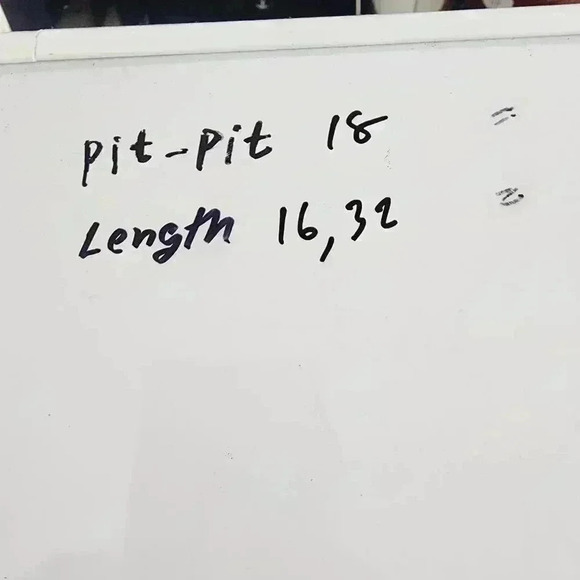 Pit-Pit 18
Length 16,32